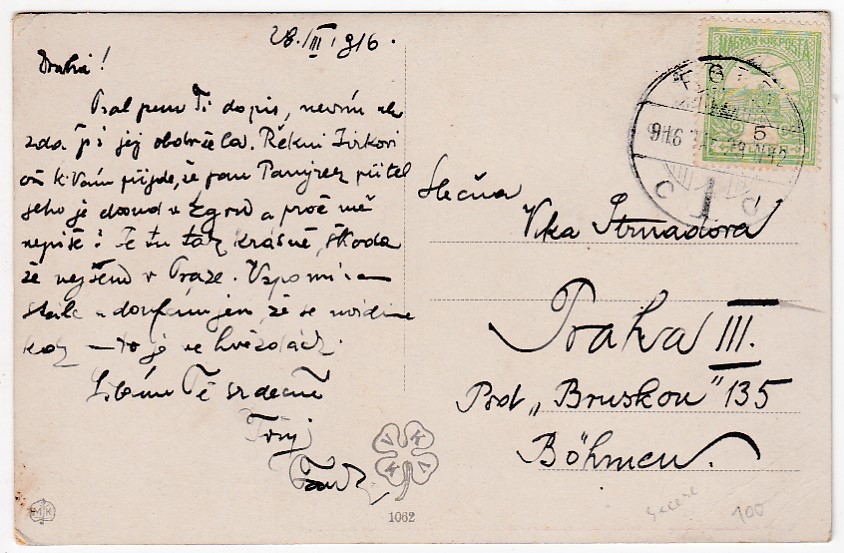 28./III 1916.
Drahá!
Psal jsem Ti dopis, nevím zda
jsi jej obdržela. Řekni Jirkovi
až k Vám přijde, že pan přítel
jeho je dosud v Egru a proč mě
nepíše! Je tu tak krásně, škoda
že nejsem v Praze. Vzpomínám
stále a doufám jen, že se uvidíme
kdy — to je ve hvězdách.
Líbám Tě srdečně
Tvůj
MAGYAR KIR. POSTA
5
916
Slečna
Strnadova
Praha III.
Pod „Bruskou" 135
Böhmen.
V K
K L
MK
1062
100